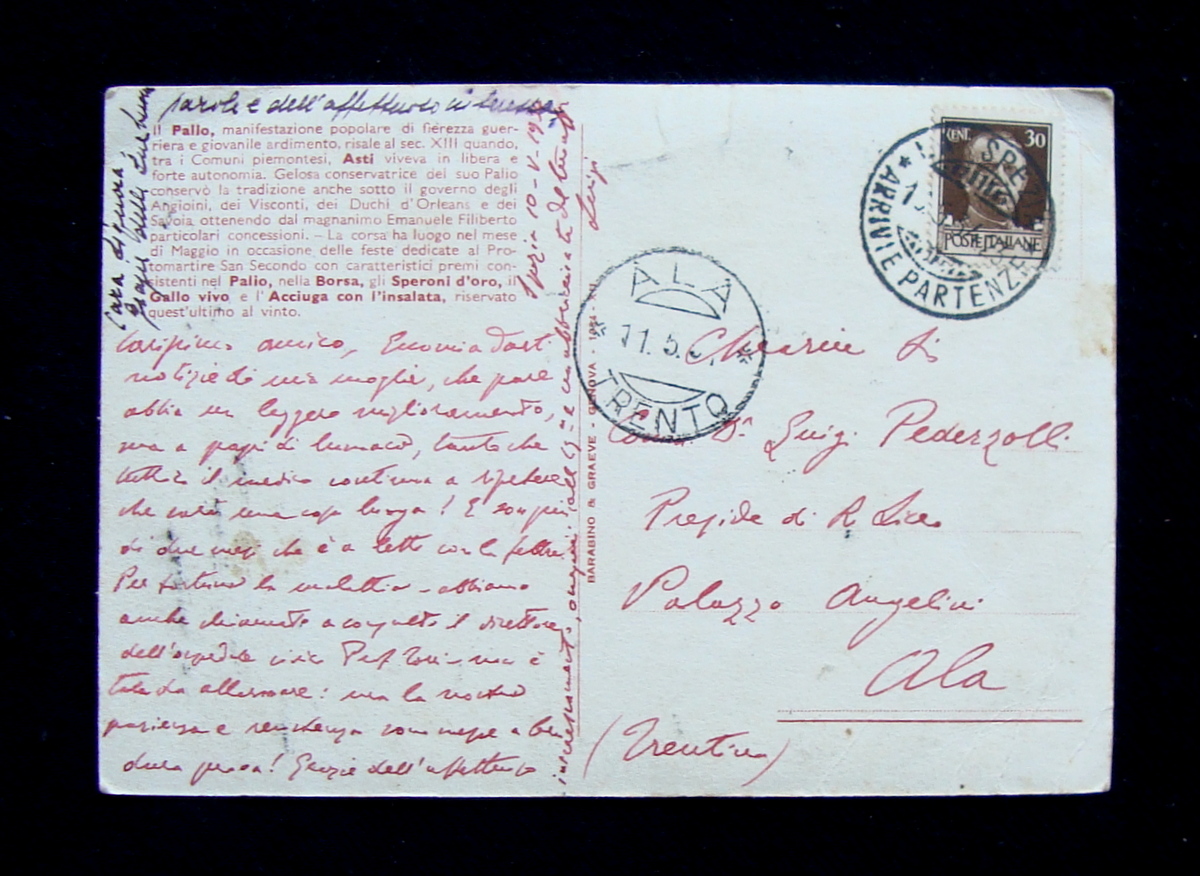 parole e dell'affettuoso interessa
Il Palio, manifestazione popolare di fierezza guer-
riera e giovanile ardimento, risale al sec. XIII quando,
tra i Comuni piemontesi, Asti viveva in libera e
forte autonomia. Gelosa conservatrice del suo Palio
conservò la tradizione anche sotto il governo degli
Angioini, dei Visconti, dei Duchi d'Orleans e dei
Savoia ottenendo dal magnanimo Emanuele Filiberto
particolari concessioni. - La corsa ha luogo nel mese
di Maggio in occasione delle feste dedicate al Pro-
tomartire San Secondo con caratteristici premi con-
sistenti nel Palio, nella Borsa, gli Speroni d'oro, il
Gallo vivo e l'Acciuga con l'insalata, riservato
quest'ultimo al vinto.
Spezia 10-V-19
Carissimo amico, Eccomi a darti
notizie di mia moglie, che pare
abbia un leggero miglioramento,
ma a passi di lumaca, tanto che
tuttora il medico continua a ripetere
che sarà una cosa lunga! E son più
di due mesi che è a letto con la febbre.
Per fortuna la malattia - abbiamo
anche chiamato a consulto il direttore
dell'ospedale civico Prof. - non è
tale da allarmare: ma la nostra
pazienza e resistenza son messe a ben
dura prova! Grazie dell'affettuoso
interessamento, auguri
e un abbraccio dal tuo aff
Luigi
BARABINO & GRAEVE - GENOVA
CENT. 30
POSTE ITALIANE
ARRIVI E PARTENZE
ALA
11.5.
TRENTO
Chiar
Dr Luigi Pederzolli
Preside di R Liceo
Palazzo Angelini
Ala
(Trentino)